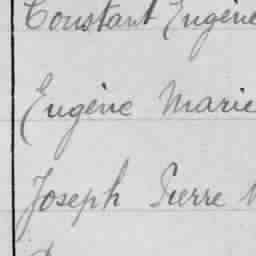 Constant Eugène
Eugène Marie
Joseph Pierre